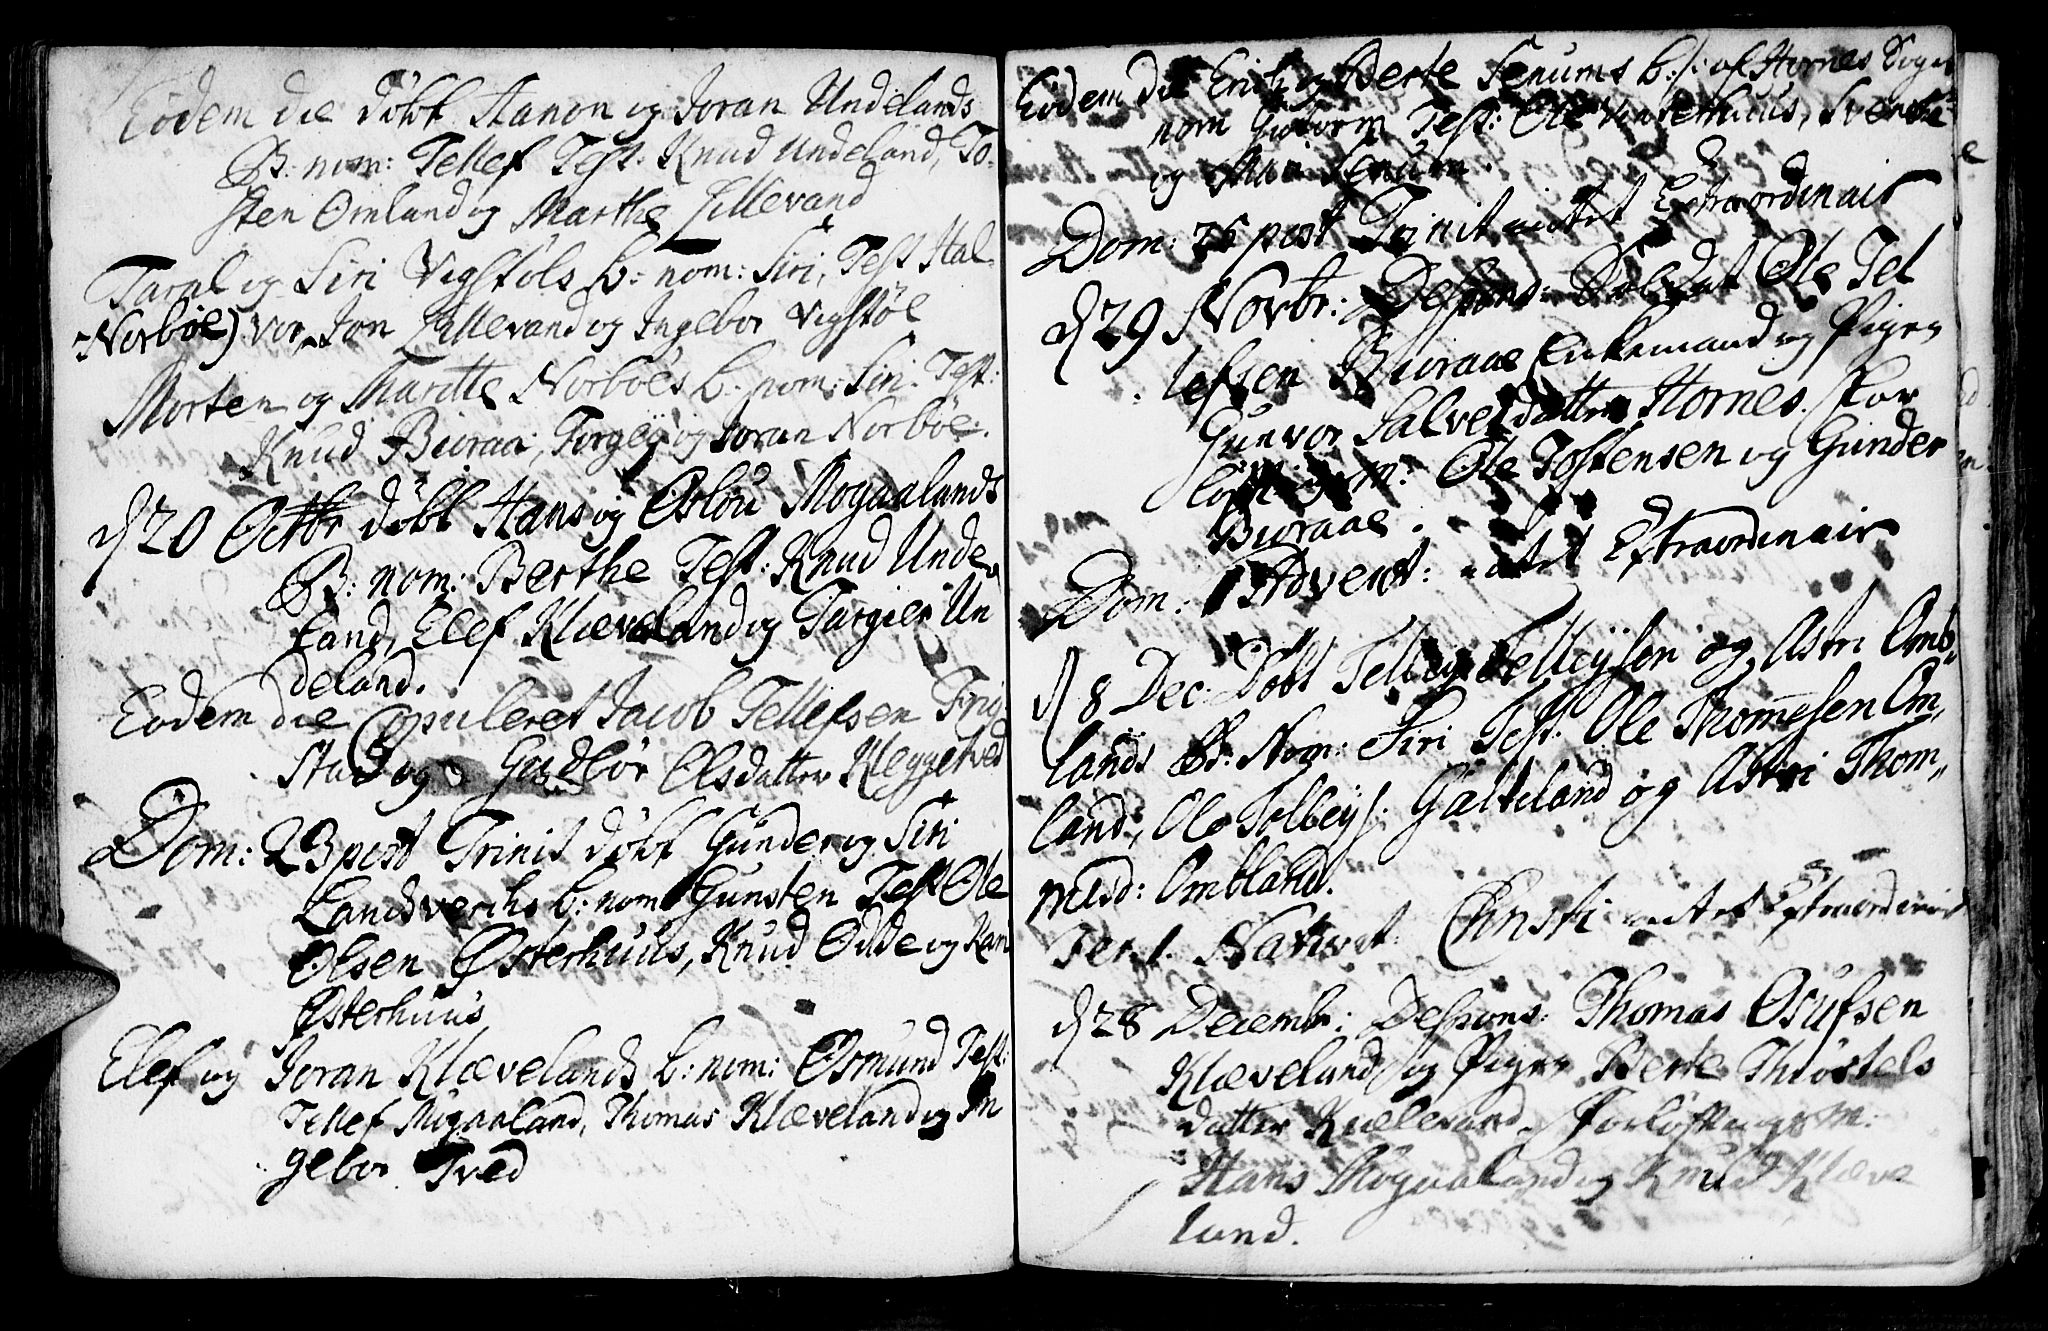 Eodem die döbt Hanon og Joran Undelands
B: nom: Tellef Test: Knud Undeland, To-
sten Omland og Marthe Lillevand
Taral og Siri Vigstöls b: nom: Siri, Test Hal
Norböe) vor Jon Lillevand og Ingebor Vigstöe
Morten og Maritte Norböes b: nom: Siri. Test:
Knud Biuraa, Torgej og Joran Norböe.
d 20 Octbr döbt Hans og Oslou Mogaalands
B: nom: Berthe Test: Knud Unde
land, Elef Klæveland og Targier Un
deland.
Eodem die Copuleret Jacob Tellefsen Frig
stad og Gudlör Olsdatter Kleggetved
Dom: 23 post Trinit döbt Gunder og Siri
Landsverchs b: nom Gunsten Test Ole
Olsen Østerhuus, Knud Odde og Kari
Østerhuus
Elef og Joran Klævelands b: nom: Osmund Test:
Tellef Migaaland, Thomas Klæveland og In
gebor Tved
Eodem die Erich og Berte Senums b: af Hornes Sogn
nom Guttorm Test: Ole Vinterhuus,
og Mari Senum.
Dom: 26 post Trinit Extraordinair
d 29 Novbr: Despond: Soldat Ole Tel
lefsen Biuraae Enkemand og Pigen
Gunvor Salvesdatter Hornes. For
löftnings m: Ole Tostensen og Gunder
Biuraae.
Dom: 1 Advent: Extraordinair
d 8 Dec: Döbt Telleys Telleysen og Astri Omb„
lands B: Nom: Siri Test: Ole Thomesen Om„
land, Ole Tolleys: Galteland og Astri Thom„
: Ombland.
Fer: 1. Nativit: Christi Extraordinair
d 28 Decembr: Despons: Thomas Osufsen
Klæveland og Pigen Berte Thiöstels
datter Kullevand. Forlöftnings m:
Hans Mogaaland og Knud Klæve
land.